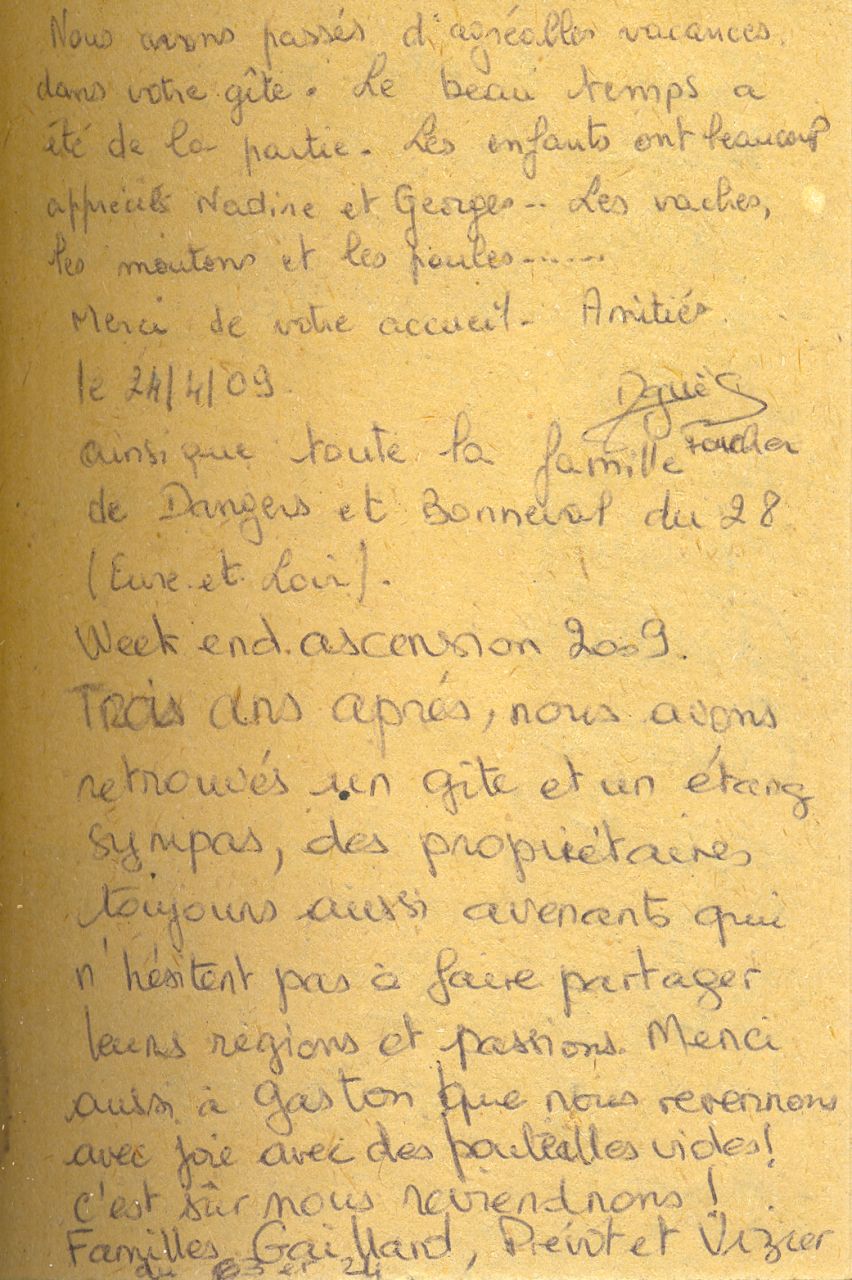 Nous avons passés d'agréables vacances.
dans votre gîte. Le beau temps a
été de la partie. Les enfants ont beaucoup
appréciés Nadine et Georges.. Les vaches,
les moutons et les poules......
Merci de votre accueil. Amitiés.
le 24/4/09.
Agnès
ainsi que toute la famille
de Dangers et Bonneval du 28
(Eure et Loir).
Week end ascension 2009.
Trois ans après, nous avons
retrouvés un gîte et un étang
sympas, des propriétaires
toujours aussi avenants qui
n'hésitent pas à faire partager
leurs régions et passions. Merci
aussi à Gaston que nous reverrons
avec joie avec des bouteilles vides!
c'est sûr nous reviendrons!
Familles Gaillard, et Vizier
du et 24